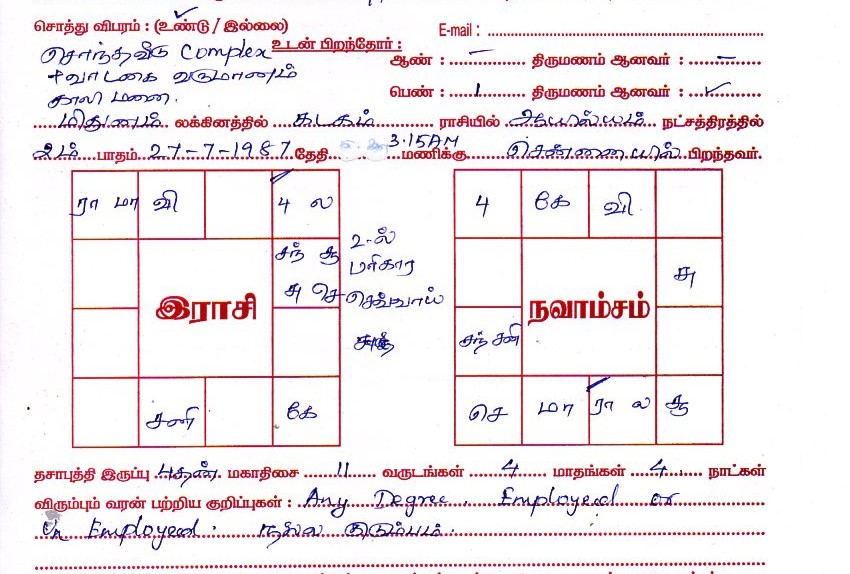 சொத்து விபரம் : (உண்டு / இல்லை)
E-mail :
சொந்தவீடு Complex
உடன் பிறந்தோர் :
ஆண் : – திருமணம் ஆனவர் : –
+ வாடகை வருமானம்
காலி மனை.
பெண் : 1 திருமணம் ஆனவர் : ✓
மிதுனம் லக்கினத்தில் கடகம் ராசியில் ஆயில்யம் நட்சத்திரத்தில்
2ம் பாதம் 27-7-1987 தேதி 3.15AM மணிக்கு சென்னையில் பிறந்தவர்.
ரா மா வி 4 ல
சந் சூ
சு செ
இராசி
சனி கே
2-ல்
பரிகார
செவ்வாய்
4 கே வி
சு
நவாம்சம்
சந் சனி
செ மா ரா ல சூ
தசாபுத்தி இருப்பு புதன் மகாதிசை 11 வருடங்கள் 4 மாதங்கள் 4 நாட்கள்
விரும்பும் வரன் பற்றிய குறிப்புகள் : Any Degree. Employeed or
Un Employeed. நல்ல குடும்பம்.